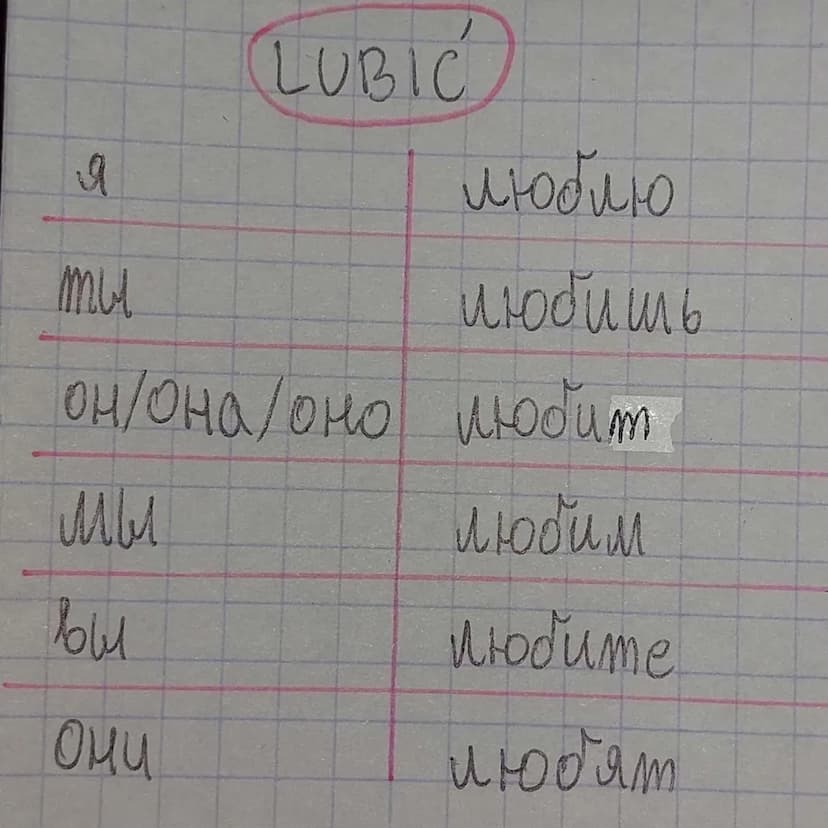 LUBIĆ
я люблю
ты любишь
он/она/оно любит
мы любим
вы любите
они любят